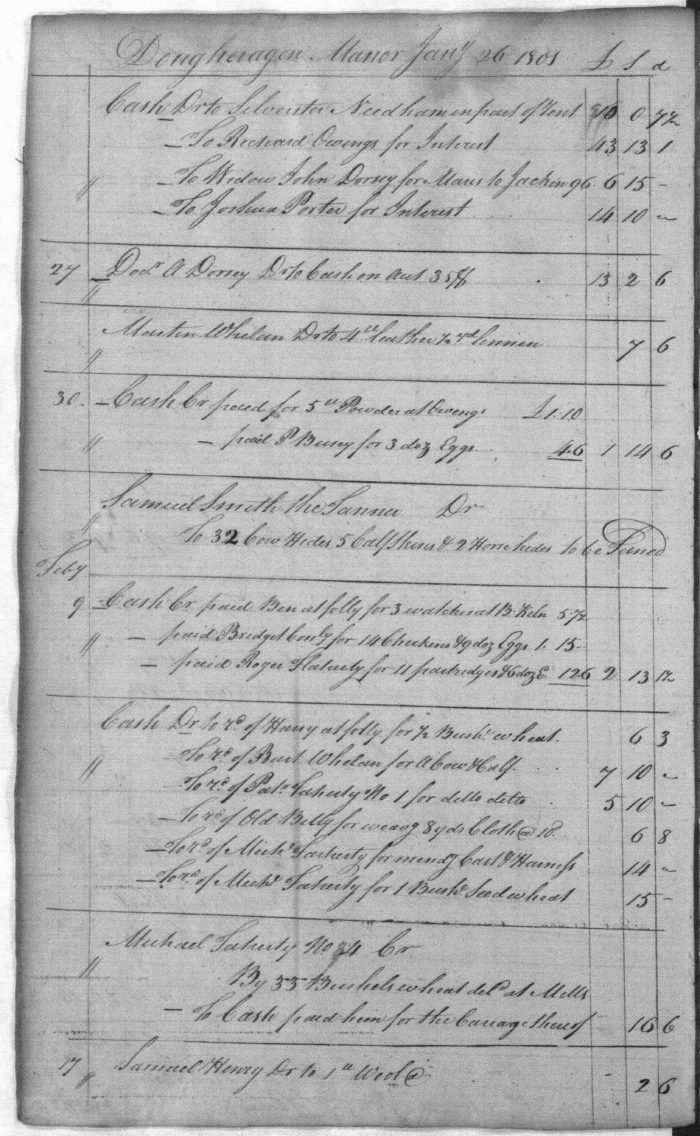 Dougheragen Manor Jany 26 1801 £ S d
Cash Dr to Silvester Needham in part of Rent 10 0 7½
To Richard Owings for Interest 43 13 1
To Widow John Dorsey for Mares to Jack in 96. 6 15 -
To Joshua Porter for Interest 14 10 -
27 Docr A Dorsey Dr to Cash on Act 35/ 13 2 6
Martin Whelan Dr to 4 lb leather ½ yd linnen 7 6
30. Cash Cr paid for 5 lb Powder at Owengs £1.10
paid P Busey for 3 doz Eggs 4.6 1 14 6
Samuel Smith the Tanner Dr
To 32 Cow Hides 5 Calf Skins & 2 Horse hides to be Tanned
Feby
9 Cash Cr paid Ben at folly for 3 watches at B. Keln 5.7½
paid Bridget Conly for 14 Chickens & 9 doz Eggs 1. 15 -
paid Roger Flaherty for 11 partridges & 6 doz E. 12.6 2 13 1½
Cash Dr to rd of Harry at folly for ½ Bushl wheat. 6 3
To rd of Bart Whelan for A Cow & Calf. 7 10 -
To rd of Patk Faherty No 1 for detto detto 5 10 -
To rd of Old Billy for weavg 8 yds Cloth @ 10d 6 8
To rd of Michl Faherty for mendg Cart & Harness 14 -
To rd of Michl Faherty for 1 Bushl Seed wheat 15 -
Michael Faherty No 4 Cr
By 55 Bushels wheat deld at Mills
To Cash paid him for the Carriage thereof 16 6
17 Samuel Henry Dr to 1 lb Wool @ 2 6